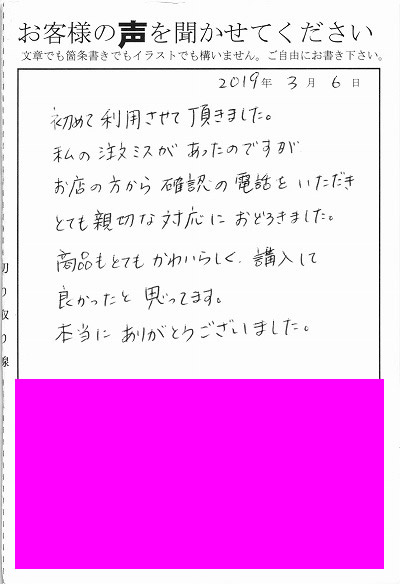 お客様の声を聞かせてください
文章でも箇条書きでもイラストでも構いません。ご自由にお書き下さい。
2019年 3月 6日
初めて利用させて頂きました。
私の注文ミスがあったのですが
お店の方から確認の電話をいただき
とても親切な対応におどろきました。
商品もとてもかわいらしく、購入して
良かったと思ってます。
本当にありがとうございました。
切り取り線